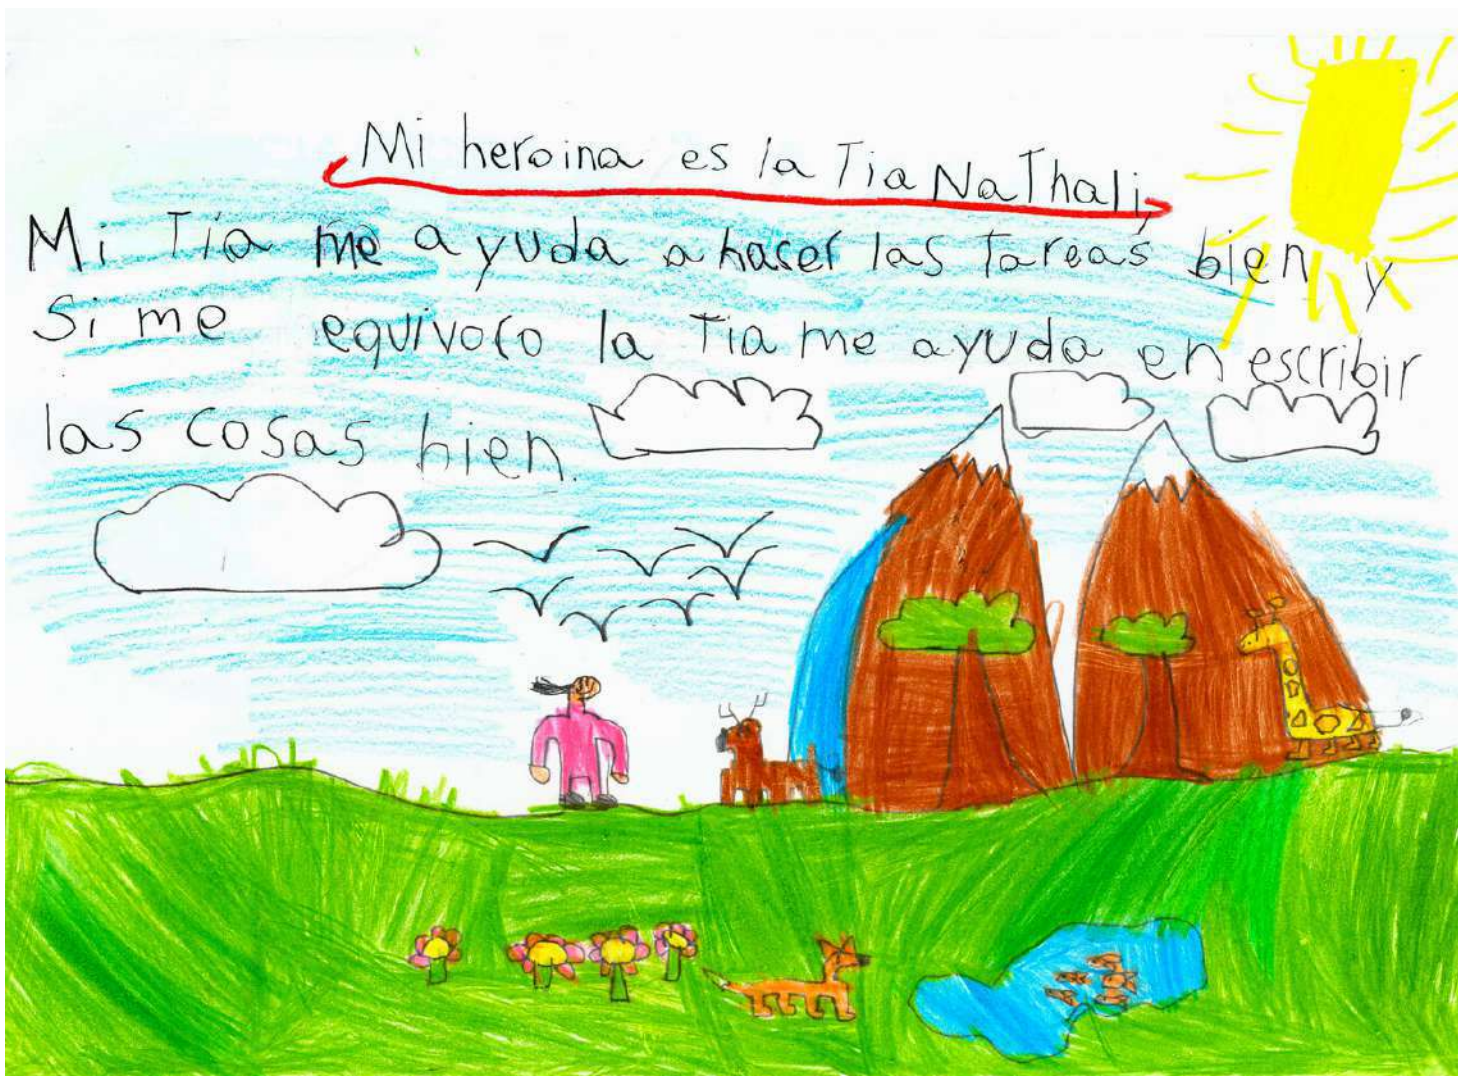 Mi heroina es la Tia NaThali,
Mi Tía me ayuda a hacer las Tareas bien y
Si me equivoco la Tia me ayuda en escribir
las cosas bien.